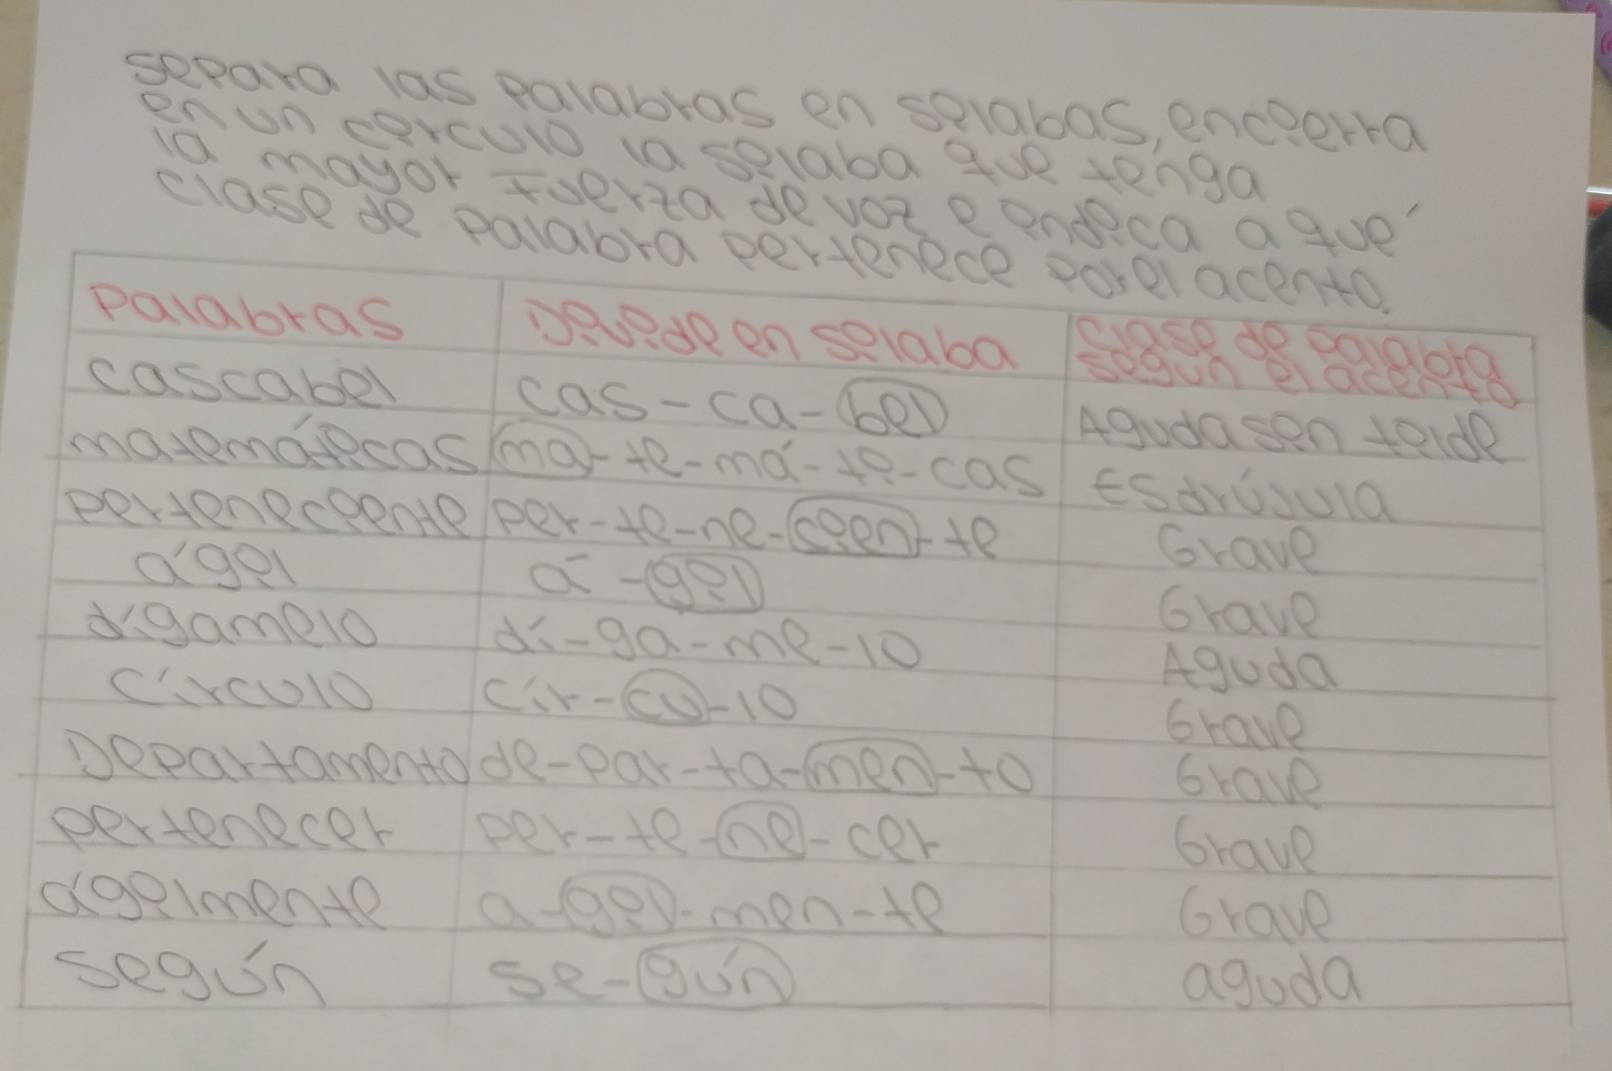 separa las palabras en selabas, enceerra
en un cerculo la selaba que tenga
la mayor fuerza de voz e endeca a que´
clase de palabra pertenece por el acento.
Palabras Devede en selaba clase de palabra
segun el acento
cascabel cas-ca-bel Aguda sen telde
matemátecas ma-te-má-te-cas Esdrújula
perteneceente per-te-ne-ceen-te Grave
ágel á-gel Grave
dígamelo dí-ga-me-lo Aguda
Círculo cír-cu-lo Grave
Departamento de-par-ta-men-to Grave
pertenecer per-te-ne-cer Grave
ágelmente a-gel-men-te Grave
según se-gún aguda